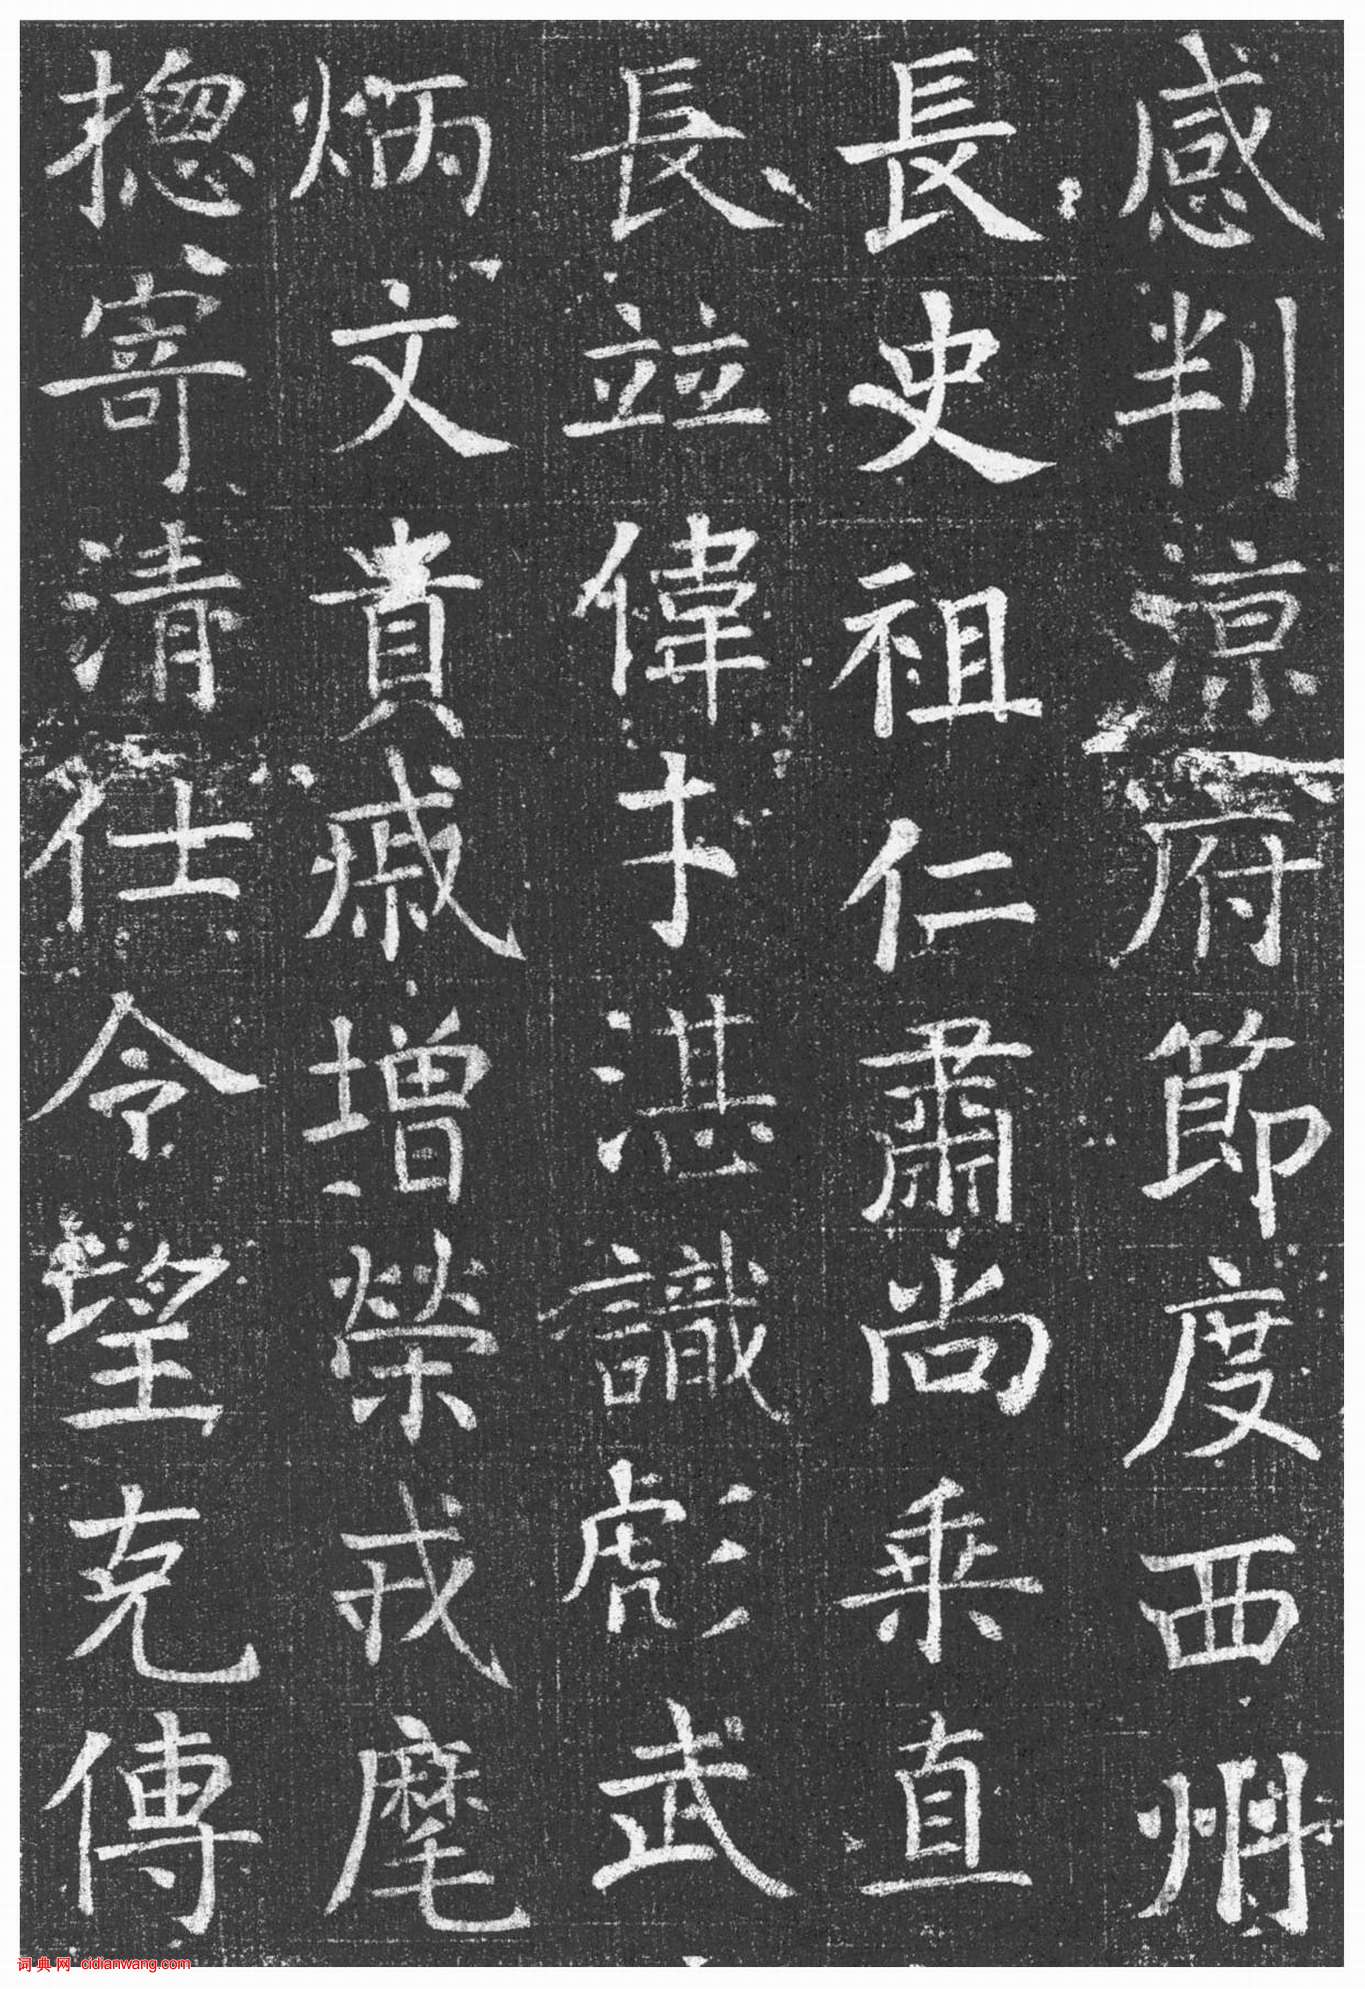 感判涼府節度西州
長史祖仁肅尚乘直
長並偉才湛識彪武
炳文貴戚增榮戎麾
揔寄清仕令望克傳
词典网 cidianwang.com